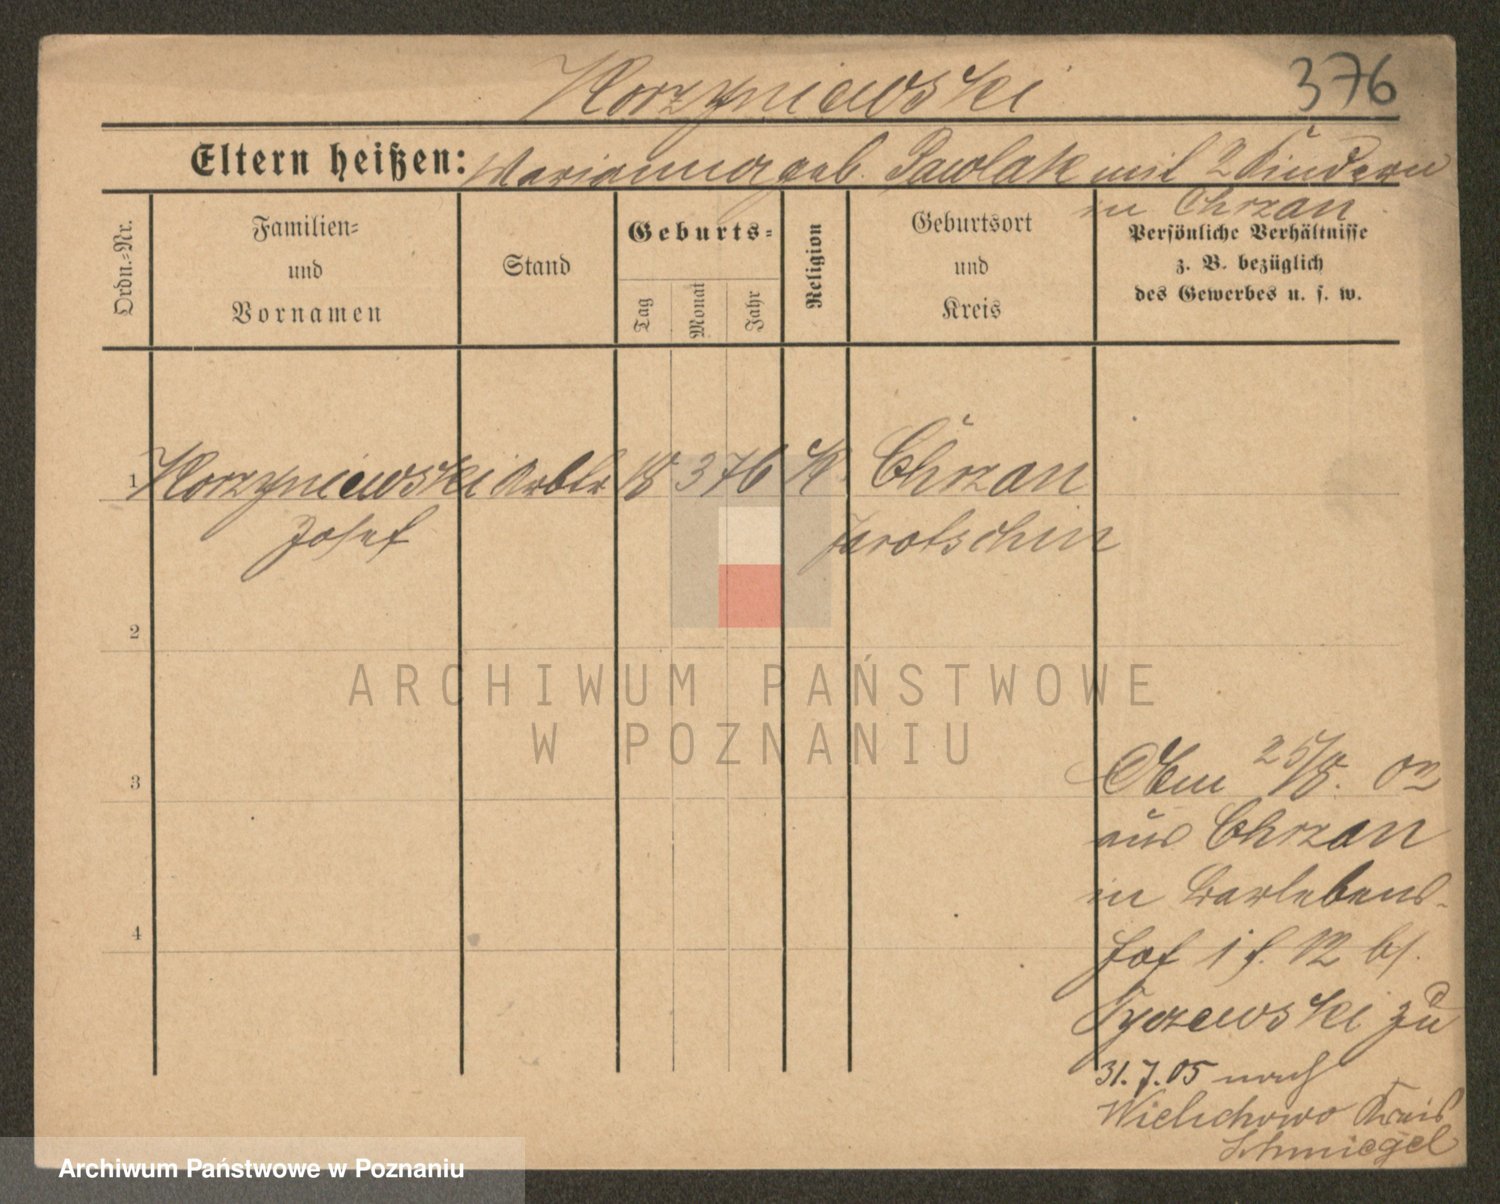 Korzyniewski 376
Eltern heißen: Marianna geb. Pawlak mit 2 Kindern
in Chrzan
Ordn.-Nr.
Familien-
und
Vornamen
Stand
Geburts-
Tag
Monat
Jahr
Religion
Geburtsort
und
Kreis
Persönliche Verhältnisse
z. B. bezüglich
des Gewerbes u. s. w.
1 Korzyniewski Arbtr 18 3 76 K. Chrzan
Josef Jarotschin
2
3
4
25/8. 02
aus Chrzan
in Barlebens-
hof 1 f. 12 b/.
zu
31.7.05 nach
Wielichowo Kreis
Schmiegel
ARCHIWUM PAŃSTWOWE
W POZNANIU
Archiwum Państwowe w Poznaniu